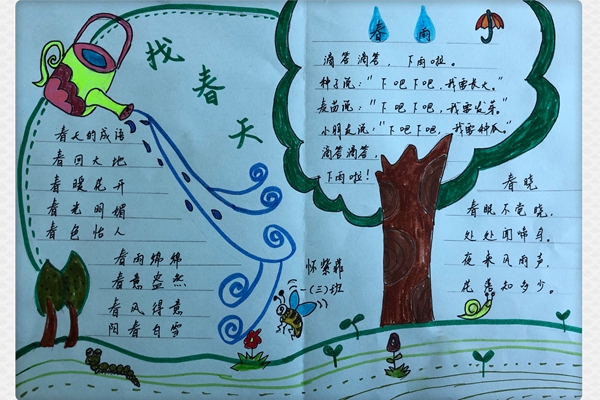 找春天
春天的成语
春回大地
春暖花开
春光明媚
春色怡人
春雨绵绵
春意盎然
春风得意
阳春白雪
春雨
滴答滴答,下雨啦。
种子说:“下吧下吧,我要长大。”
麦苗说:“下吧下吧,我要发芽。”
小朋友说:“下吧下吧,我要种瓜。”
滴答滴答,
下雨啦!
春晓
春眠不觉晓,
处处闻啼鸟。
夜来风雨声,
花落知多少。
怀紫菲
一(三)班